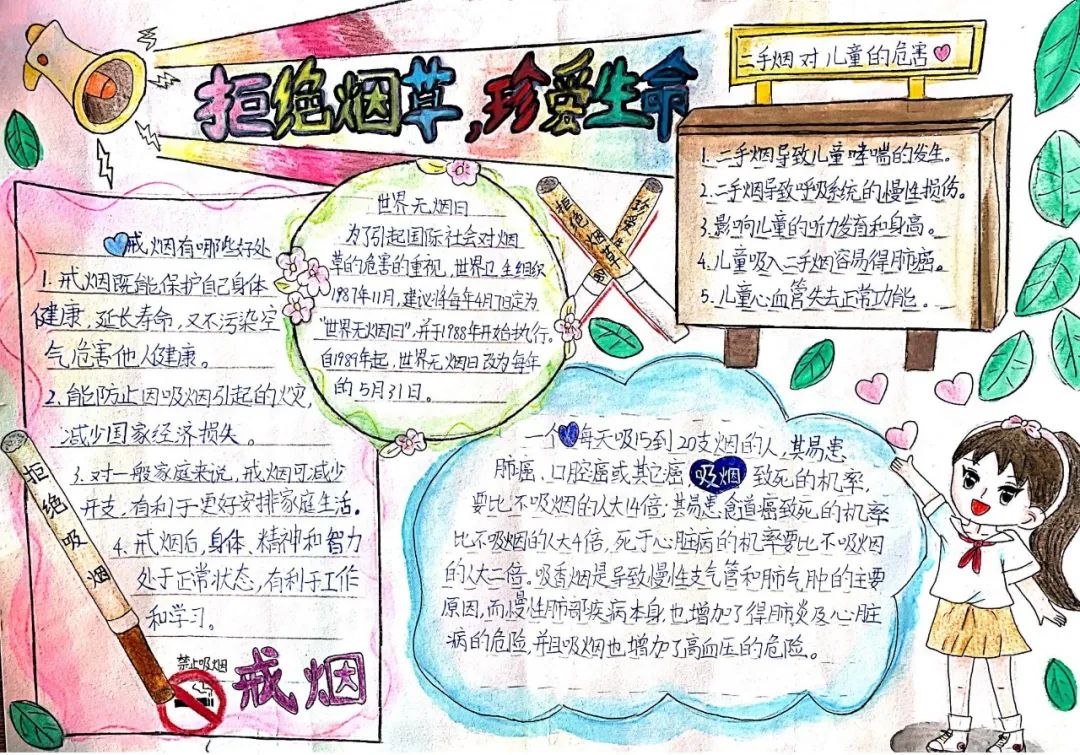 拒绝烟草,珍爱生命
二手烟对儿童的危害
1.二手烟导致儿童哮喘的发生。
2.二手烟导致呼吸系统的慢性损伤。
3.影响儿童的听力发育和身高。
4.儿童吸入二手烟容易得肺癌。
5.儿童心血管失去正常功能。
世界无烟日
为了引起国际社会对烟
草的危害的重视,世界卫生组织
1987年11月,建议将每年4月7日定为
“世界无烟日”,并于1988年开始执行。
自1989年起,世界无烟日改为每年
的5月31日。
珍爱生
命
戒烟有哪些好处
1.戒烟既能保护自己身体
健康,延长寿命,又不污染空
气危害他人健康。
2.能防止因吸烟引起的火灾,
减少国家经济损失。
3.对一般家庭来说,戒烟可减少
开支,有利于更好安排家庭生活。
4.戒烟后,身体、精神和智力
处于正常状态,有利于工作
和学习。
拒绝吸烟
禁止吸烟
戒烟
一个每天吸15到20支烟的人,其易患
肺癌、口腔癌或其它癌 吸烟 致死的机率,
要比不吸烟的人大14倍;其易患食道癌致死的机率
比不吸烟的人大4倍,死于心脏病的机率要比不吸烟
的人大二倍。吸香烟是导致慢性支气管和肺气肿的主要
原因,而慢性肺部疾病本身,也增加了得肺炎及心脏
病的危险,并且吸烟也增加了高血压的危险。